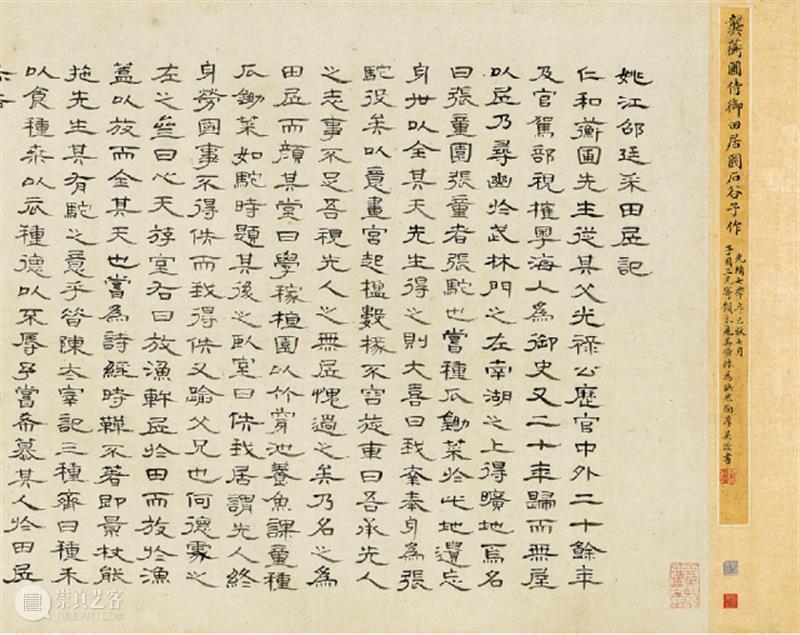 龔蘅圃侍御田居圖石谷子作
姚江邵廷采田居記
仁和蘅圃先生從其父光祿公歷官中外二十餘年
及官駕部視榷粵海入為御史又二十年歸而無屋
以居乃尋幽於武林門之左南湖之上得曠地焉名
曰張童園張童者張駝也嘗種瓜鋤菜於此地遺忘
身世以全其天先生得之則大喜曰我奉身為張
駝役矣以意畫宮起楹數椽不容旋東曰吾承先人
之志事不足吾視先人之無居愧過之矣乃名之為
田居而顏其堂曰學稼檀園以竹穿池養魚課童種
瓜鋤菜如駝時題其後之臥室曰佚我居謂先人終
身勞國事不得佚而我得佚又踰父兄也何德處之
左之曰心天游室右曰放漁軒居於田而放於漁
蓋以放而全其天也嘗為詩經時韡不著即景杖能
拖先生其有駝之意乎昔陳太宰記三種齋曰種禾
以食種桑以衣種德以不辱予嘗希慕其人於田居
崇真艺客